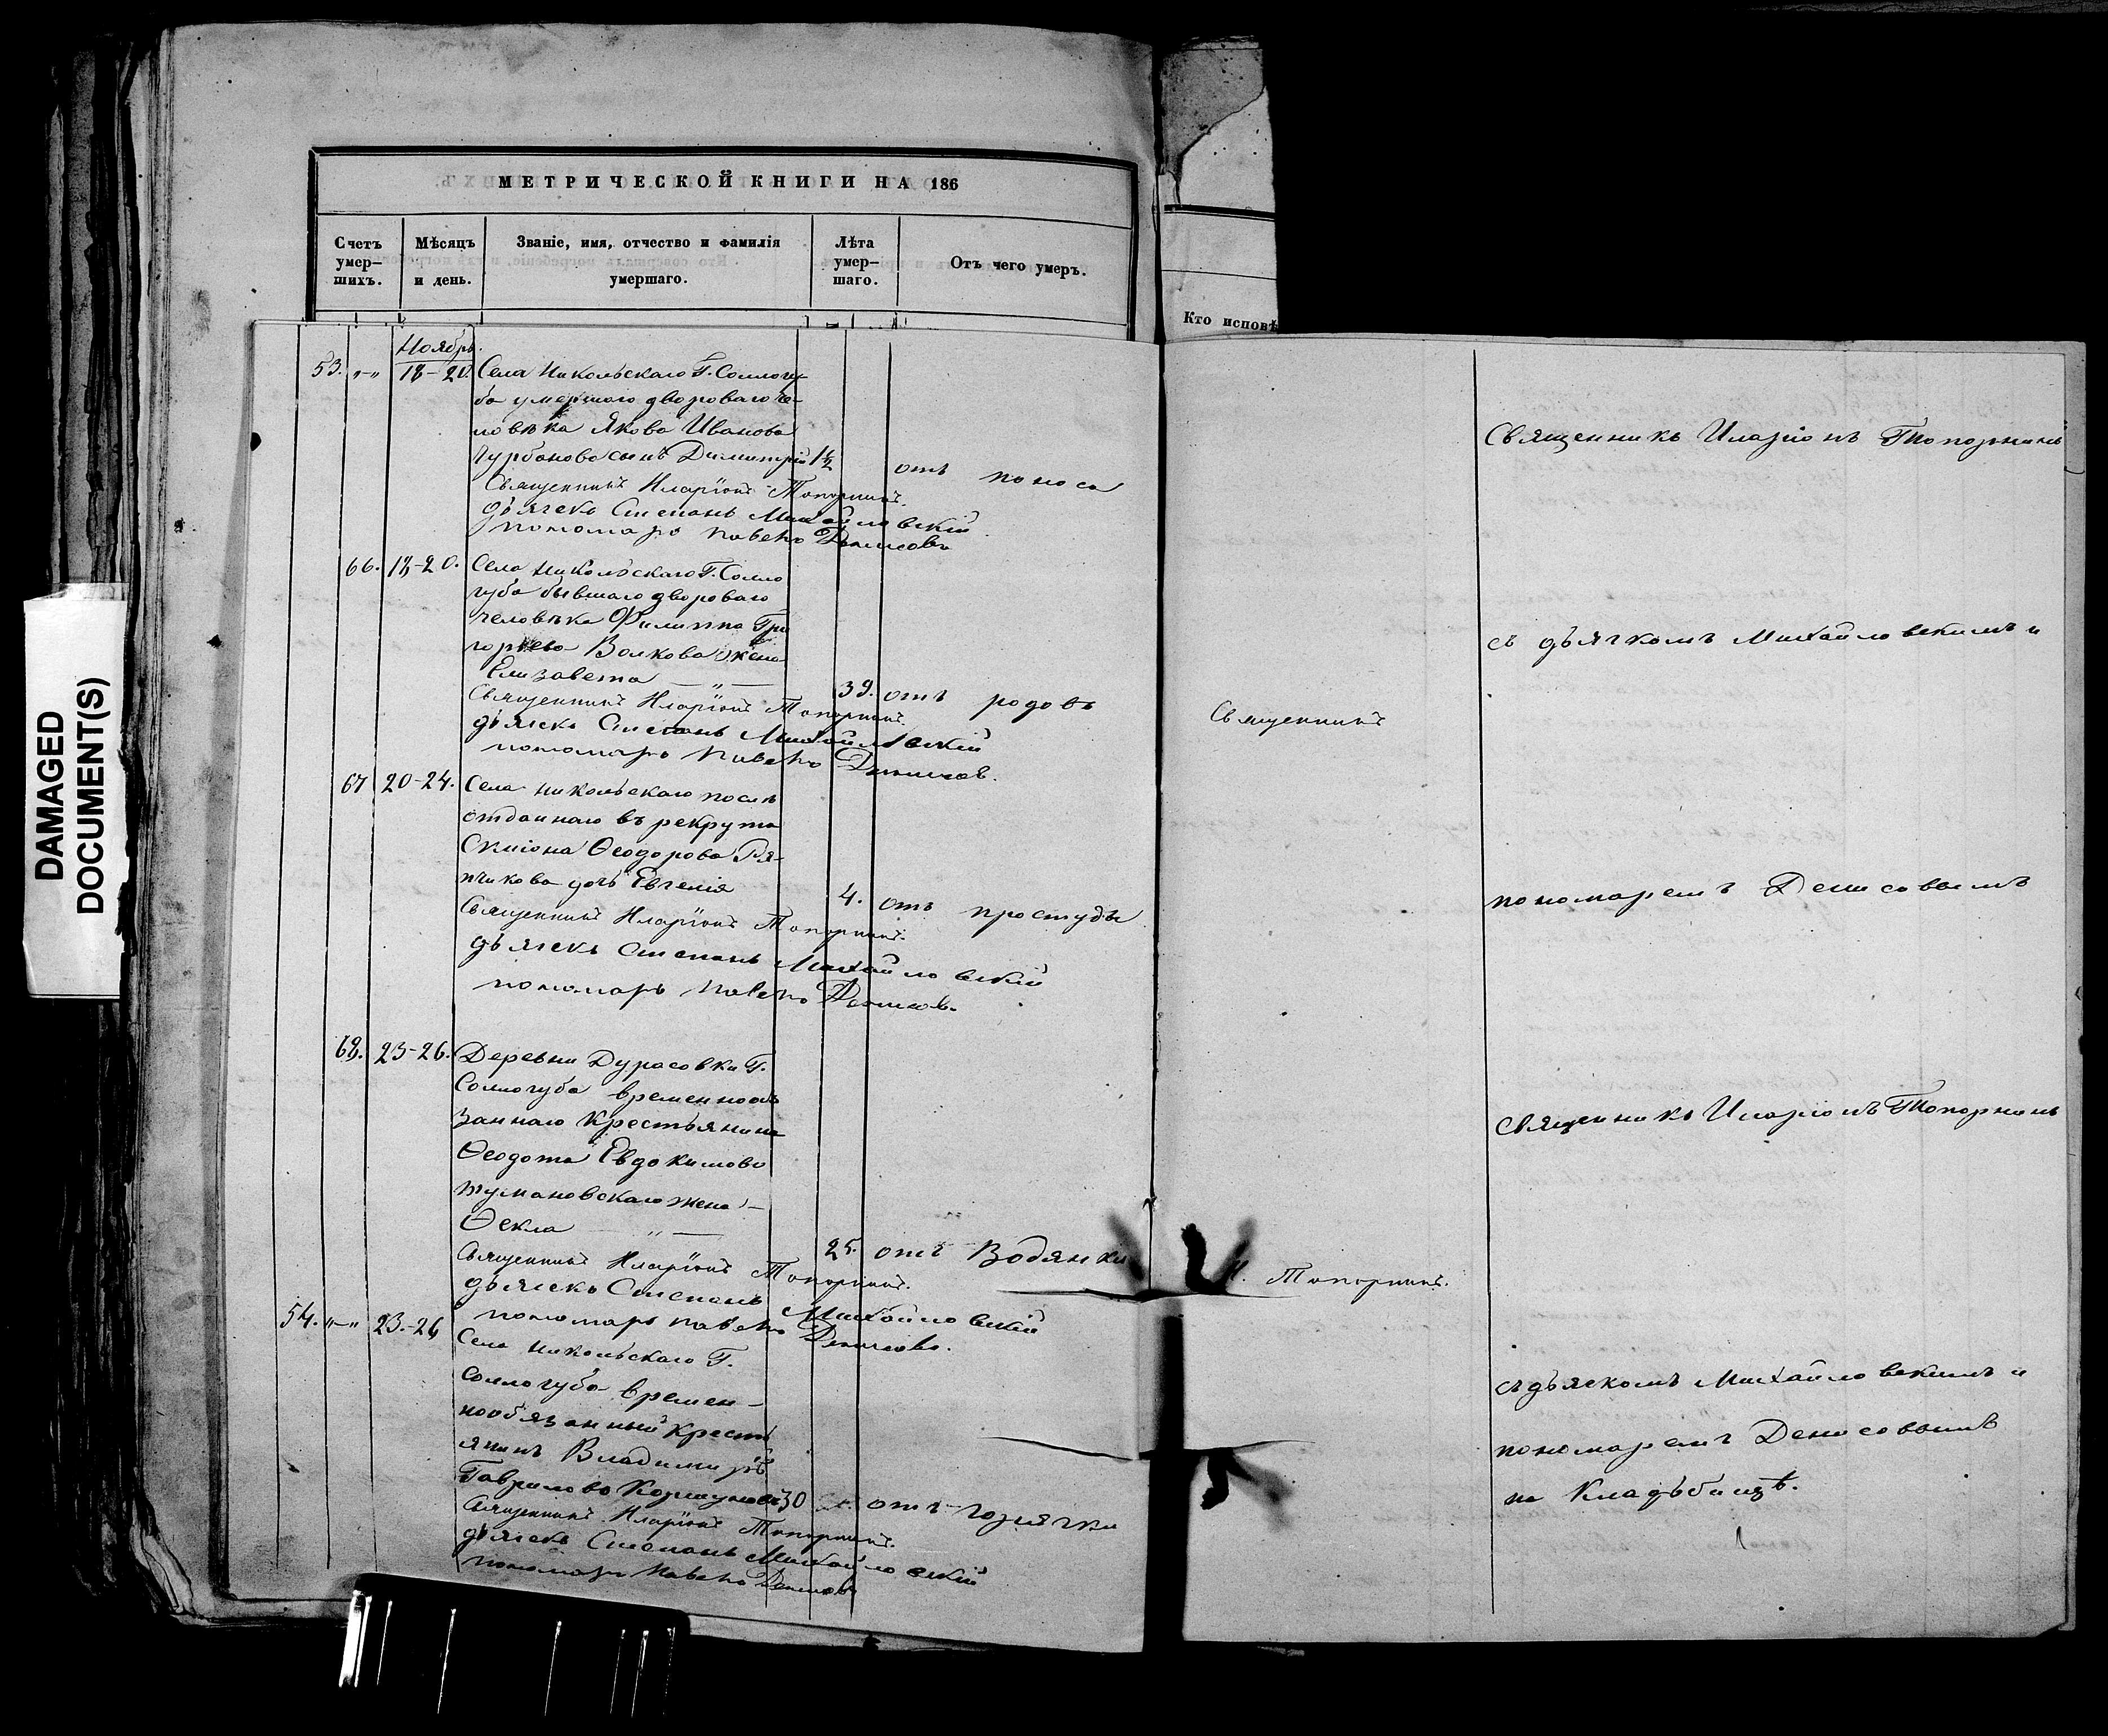 МЕТРИЧЕСКОЙ КНИГИ НА 186
Счетъ умер–шихъ.
Мѣсяцъ и день.
Званіе, имя, отчество и фамилія умершаго.
Лѣта умер–шаго.
Отъ чего умеръ.
Кто исповѣ
DAMAGED
DOCUMENT(S)
Ноябрь.
53. „–„ 18–20. Села Никольскаго Г. Соллогу
ба умершаго двороваго че–
ловѣка Якова Иванова
Чурбанова сынъ Димитрій 1½ отъ поноса
Священникъ Иларіонъ Топорнинъ.
дьячекъ Степанъ Михайловскій
пономарь Павелъ Денисовъ
66. 18–20. Села Никольскаго Г. Солло
губа бывшаго двороваго
человѣка Филиппа Гри
горьева Волкова жена
Елизавета — „ — 39. отъ родовъ
Священникъ Иларіонъ Топорнинъ.
дьячекъ Степанъ Михайловскій
пономарь Павелъ Денисов.
67 20–24. Села Никольскаго послѣ
отданнаго въ рекрута
Симіона Ѳеодорова Ря–
пчикова дочь Евгенія 4. отъ простуды
Священникъ Иларіонъ Топорнинъ.
дьячекъ Степанъ Михайловскій
пономарь Павелъ Денисовъ.
68. 23–26. Деревни Дурасовки Г.
Соллогуба временнообя
заннаго крестьянина
Ѳеодота Евдокимова
Тумановскаго жена –
Ѳекла — „ — 25. отъ Водянки
Священникъ Иларіонъ Топорнинъ.
дьячекъ Степанъ Михайловскій
пономарь Павелъ Денисовъ.
54. „–„ 23.–26 Села Никольскаго Г.
Соллогуба времен–
нообязанный кресть
янинъ Владимиръ
Гавриловъ Коршуновъ 30 отъ горячки
Священникъ Иларіонъ Топорнинъ.
дьячекъ Степанъ Михайловскій
пономарь Павелъ Денисовъ
Священникъ
Топорнинъ.
Священникъ Иларіонъ Топорнинъ
съ дьячкомъ Михайловскимъ и
пономаремъ Денисовымъ
Священникъ Иларіонъ Топорнинъ
съ дьячкомъ Михайловскимъ и
пономаремъ Денисовымъ
на Кладьбищѣ.